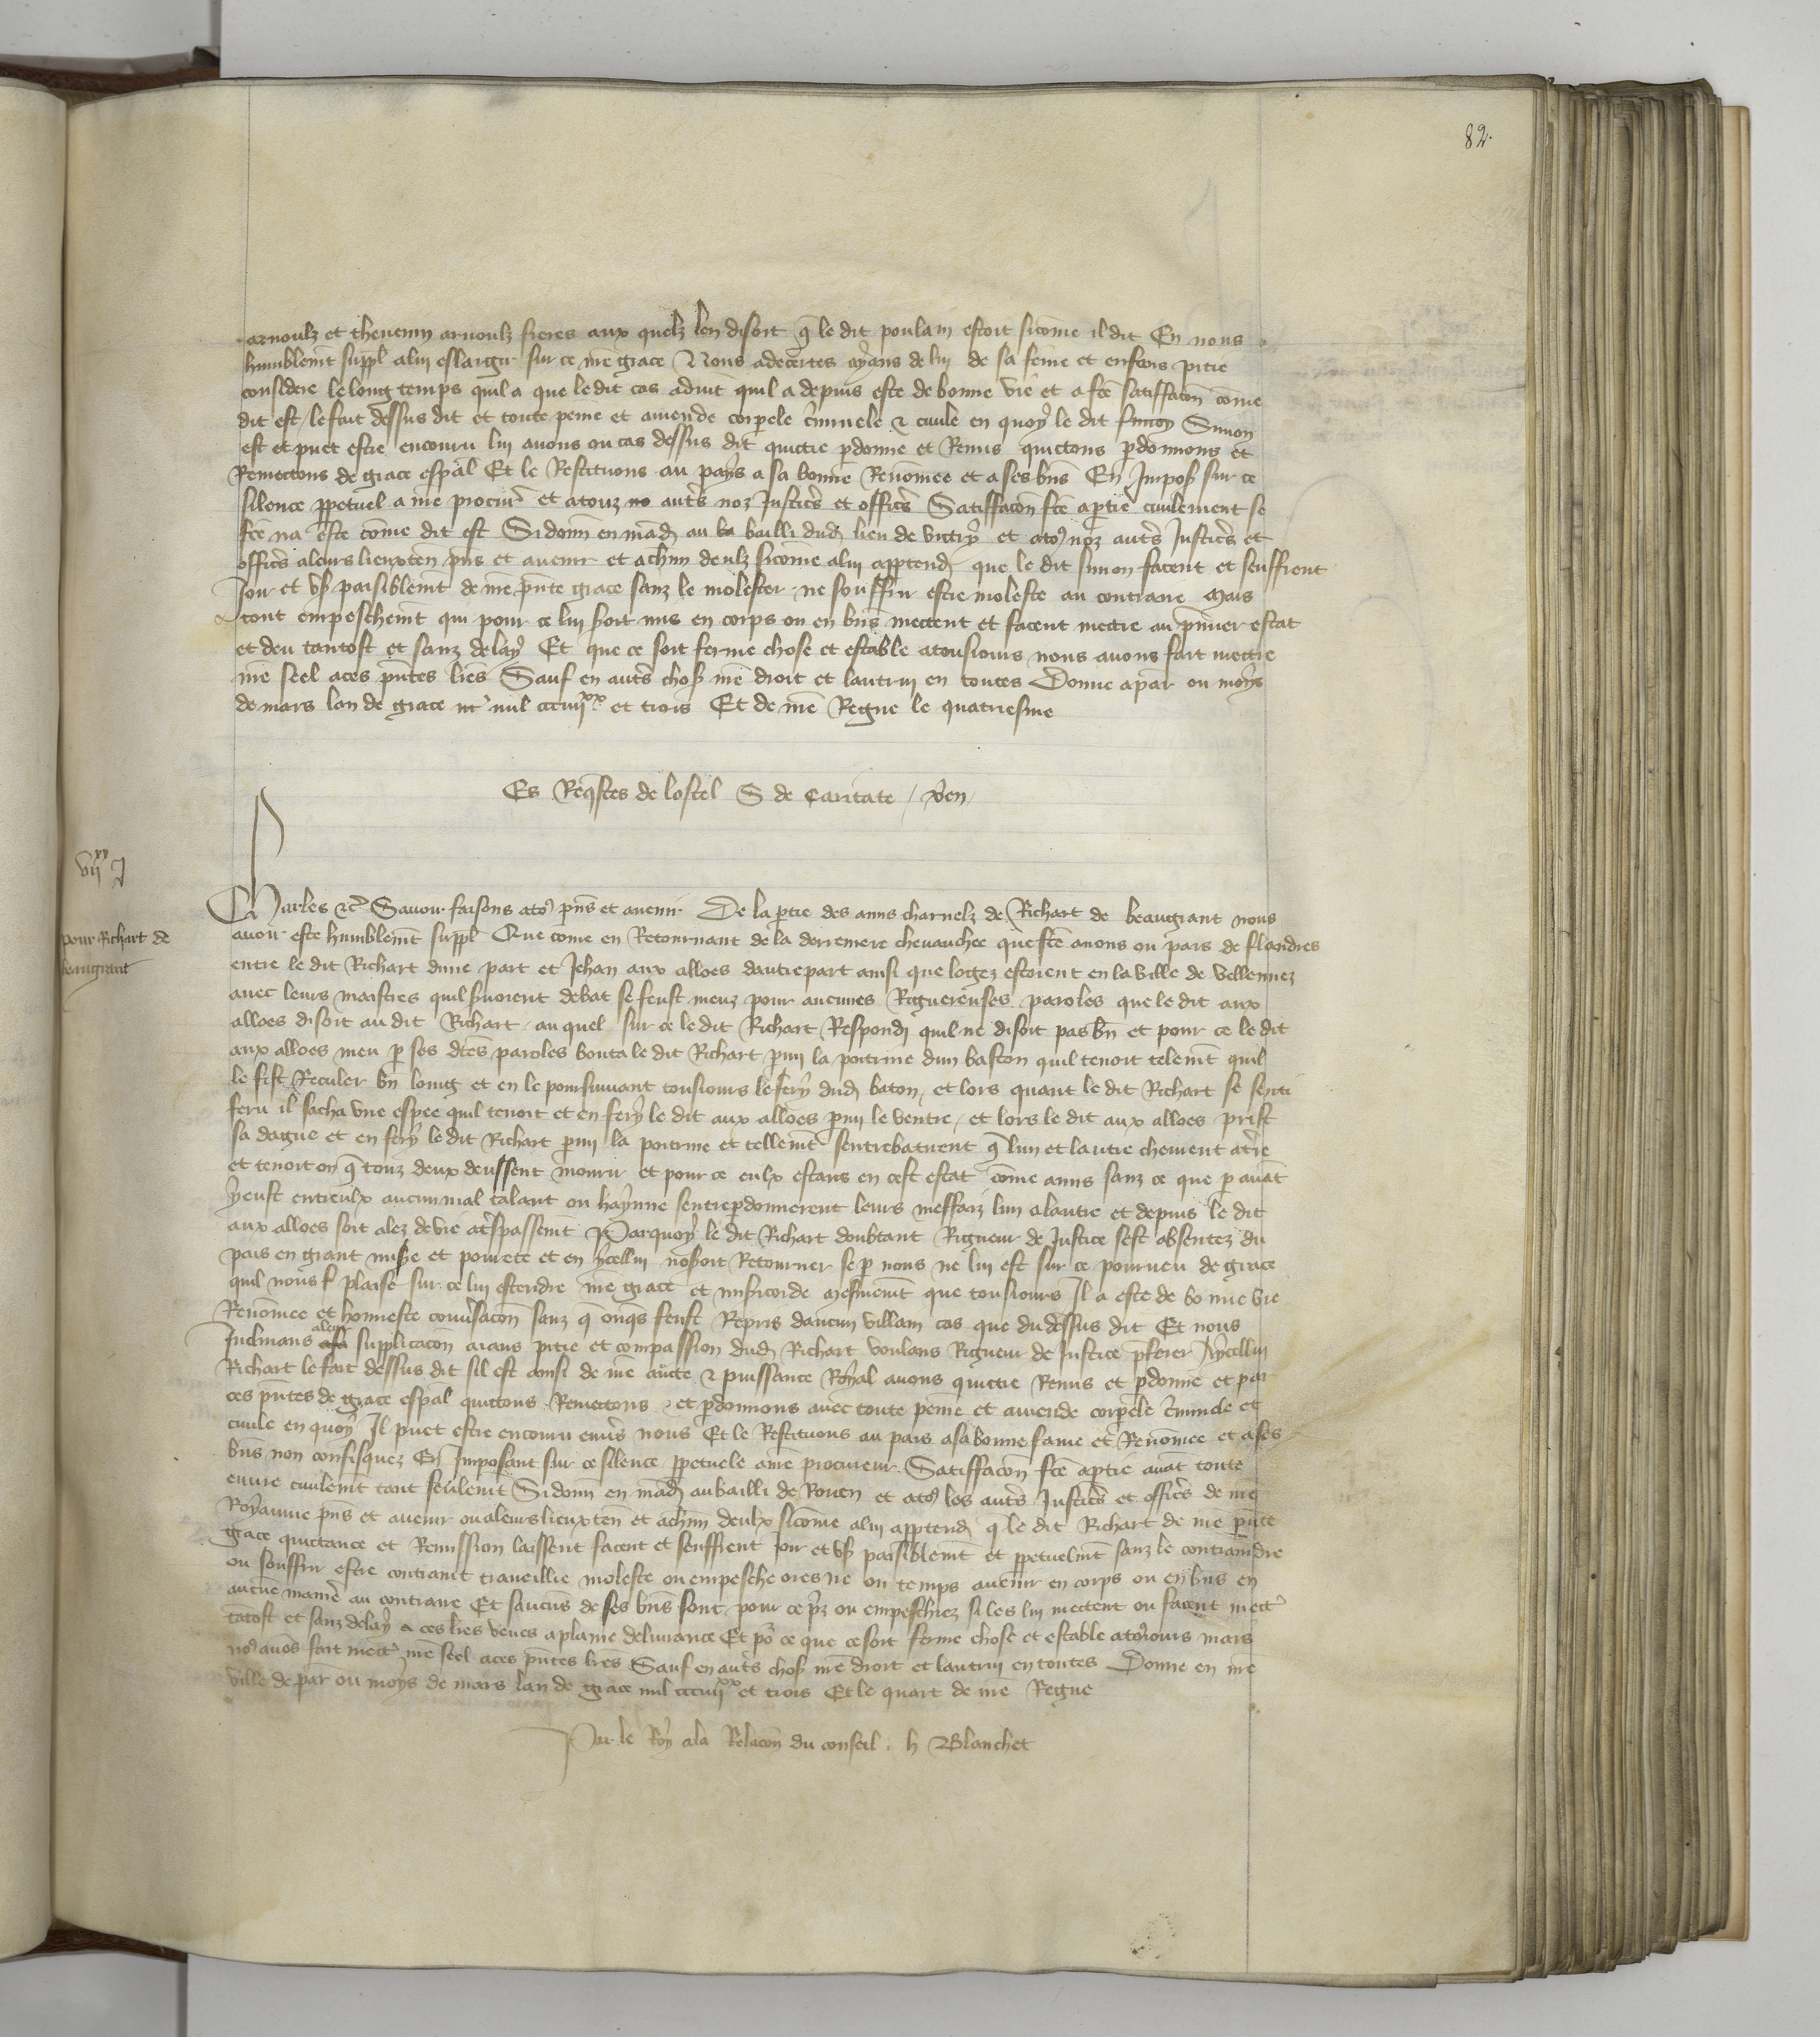 82.
arnoulz et thevenin arnoulz freres aux quelz len disoit q̃ le dit poulain estoit sicõme il dit En nous
humblem̃t suppl̃ a lui eslargir sur ce nr̃e grace Nous adecertes ayans de lui de sa fem̃e et enfens pitie
considere le long temps quil a que le dit cas advint quil a depuis este de bonne vie et a fc̃e satiffacõn cõme
dit est / le fait dessus dit et toute peine et amende corporele c̃iminele & civile en quoy le dit Simon
est et puet estre encouru lui avons ou cas dessus dit quictie ꝑdonne et Remis quictons ꝑdonnons et
Remectons de grace esp̃al Et le Restituons au pays a sa bonne Renõmee et a ses bn̄s En Impost̃ sur ce
silence ꝑpetuel a nr̃e procur̃ et a touz autr̃s noz Justicr̃s et officr̃s Satiffacõn fc̃e a ꝑtie civilement se
fc̃e na este cõme dit est Si donñ en mãd au bailli dud̃ lieu de vitry et a toꝰ noz autr̃s Justicr̃s et
officr̃s a leurs lieuxten̄ pñs et avenir et a chũn deulz sicõme a lui apptend̃ que le dit simon facent et seuffrent
Joir et us̃ paisiblem̃t de nr̃e pñte grace sanz le molester ne souffrir estre moleste au contraire Mais
tout empeschem̃t qui pour ce lui soit mis en corps ou en bñs mectent et facent mectre au p̃mier estat
et deu tantost et sanz delay Et que ce soit ferme chose et estable a tousiours nous avons fait mectre
nr̃e seel a ces pñtes lr̃es Sauf en autr̃s chos̃ nr̃e droit et lautrui en toutes Donne a par̃ ou moys
de mars lan de grace mil ccciiii^xx et trois Et de nr̃e Regne le quatriesme
Es Reqtes de lostel S de Caritate /
vii^xx I
pour Richart de
beaugrant
Charles &c̃ Savoir faisons a toꝰ pñs et avenir De la ꝑtie des amis charnelz de Richart de beaugrant nous
avoir este humblem̃t suppl̃ Que cõme en Retournant de la derreniere chevauchee que fc̃e avons ou pais de flandres
entre le dit Richart dune part et Jehan aux alloes dautre part ainsi que logez estoient en la ville de vellennez
avec leurs maistres quil s̃voient debat se feust meuz pour aucunes Riguereuses paroles que le dit aux
alloes disoit au dit Richart au quel sur ce le dit Richart Respond̃ quil ne disoit pas bñ et pour ce le dit
aux alloes meu ꝑ ses dc̃es paroles bouta le dit Richart ꝑmi la poitrine dun baston quil tenoit telem̃t quil
le fist Reculer bñ loing et en le poursuivant tousiours le fery dud̃ baton, et lors quant le dit Richart se senti
feru il sacha une espee quil tenoit et en fery le dit aux alloes ꝑmi le ventre / et lors le dit aux alloes prist
sa dague et en fery le dit Richart ꝑmi la poitrine et tellem̃t sentrebatirent q̃ lun et lautre cheirent a t̃re
et tenoit on q̃ touz deux deussent mourir et pour ce eulx estans en cest estat cõme amis sanz ce que ꝑ avãt
y eust entreulx aucun mal talant ou haynne sentrepardonnerent leurs meffaiz lun a lautre et depuis le dit
aux alloes soit alez de vie a tr̃spassem̃t Parquoy le dit Richart doubtant Rigueur de Justice sest absentez du
pais en grant mis̃e et povrete et en ycellui noseroit Retourner se ꝑ nous ne lui est sur ce pourveu de grace
quil nous plaise sur ce lui estendre nr̃e grace et misc̃icorde Mesmem̃t que tousiours Il a este de bonne vie
Renõmee et honneste conv̾sacõn sanz q̃ onqs feust Repris daucun villain cas que du dessus dit Et nous
Inclinans a leur supplicacõn aians pitie et compassion dud̃ Richart voulans Rigueur de Justice p̃ferer Aycellui
Richart le fait dessus dit sil est ainsi de nr̃e auc̃te & puissance Royal avons quictie Remis et ꝑdonne et par
ces pñtes de grace esp̃al quictons Remectons et ꝑdonnons avec toute peine et amende corporele c̃iminele et
civile en quoy Il puet estre encouru env̾s nous Et le Restituons au pais a sa bonne fame et Renõmee et a ses
bñs non confisquez En Imposant sur ce silence ꝑpetuele a nr̃e procureur Satiffacõn fc̃e a ꝑtie avãt toute
euvre civilem̃t tant seulem̃t Si donñ en mãd̃ au bailli de Rouen et a toꝰ les autr̃s Justicr̃s et officr̃s de nr̃e
Royaume pñs et avenir ou a leurs lieuxten̄ et a chũn deulx sicõme a lui apptend̃ q̃ le dit Richart de nr̃e pñte
grace quictance et Remission laissent facent et seuffrent Joir et us̃ paisiblem̃t et ꝑpetuelm̃t sanz le contraindre
ou souffrir estre contraint travaillie moleste ou empesche ores ne ou temps avenir en corps ou en bñs en
aucũe manie͂ au contraire Et saucũs de ses bñs sont pour ce p̃z ou empeschiez si les lui mectent ou facent mectr̃
tãtost et sanz delay a ces lr̃es veues a plaine delivrance Et po͂ ce que ce soit ferme chose et estable a toꝰiours mais
noꝰ avõs fait mectr̃ nr̃e seel a ces pñtes lr̃es Sauf en autr̃s chos̃ nr̃e droit et lautrui en toutes Donne en nr̃e
ville de par̃ ou moys de mars lan de grace mil ccciiii^xx et trois Et le quart de nr̃e Regne
Par le Roy a la Relacõn du conseil . h Blanchet